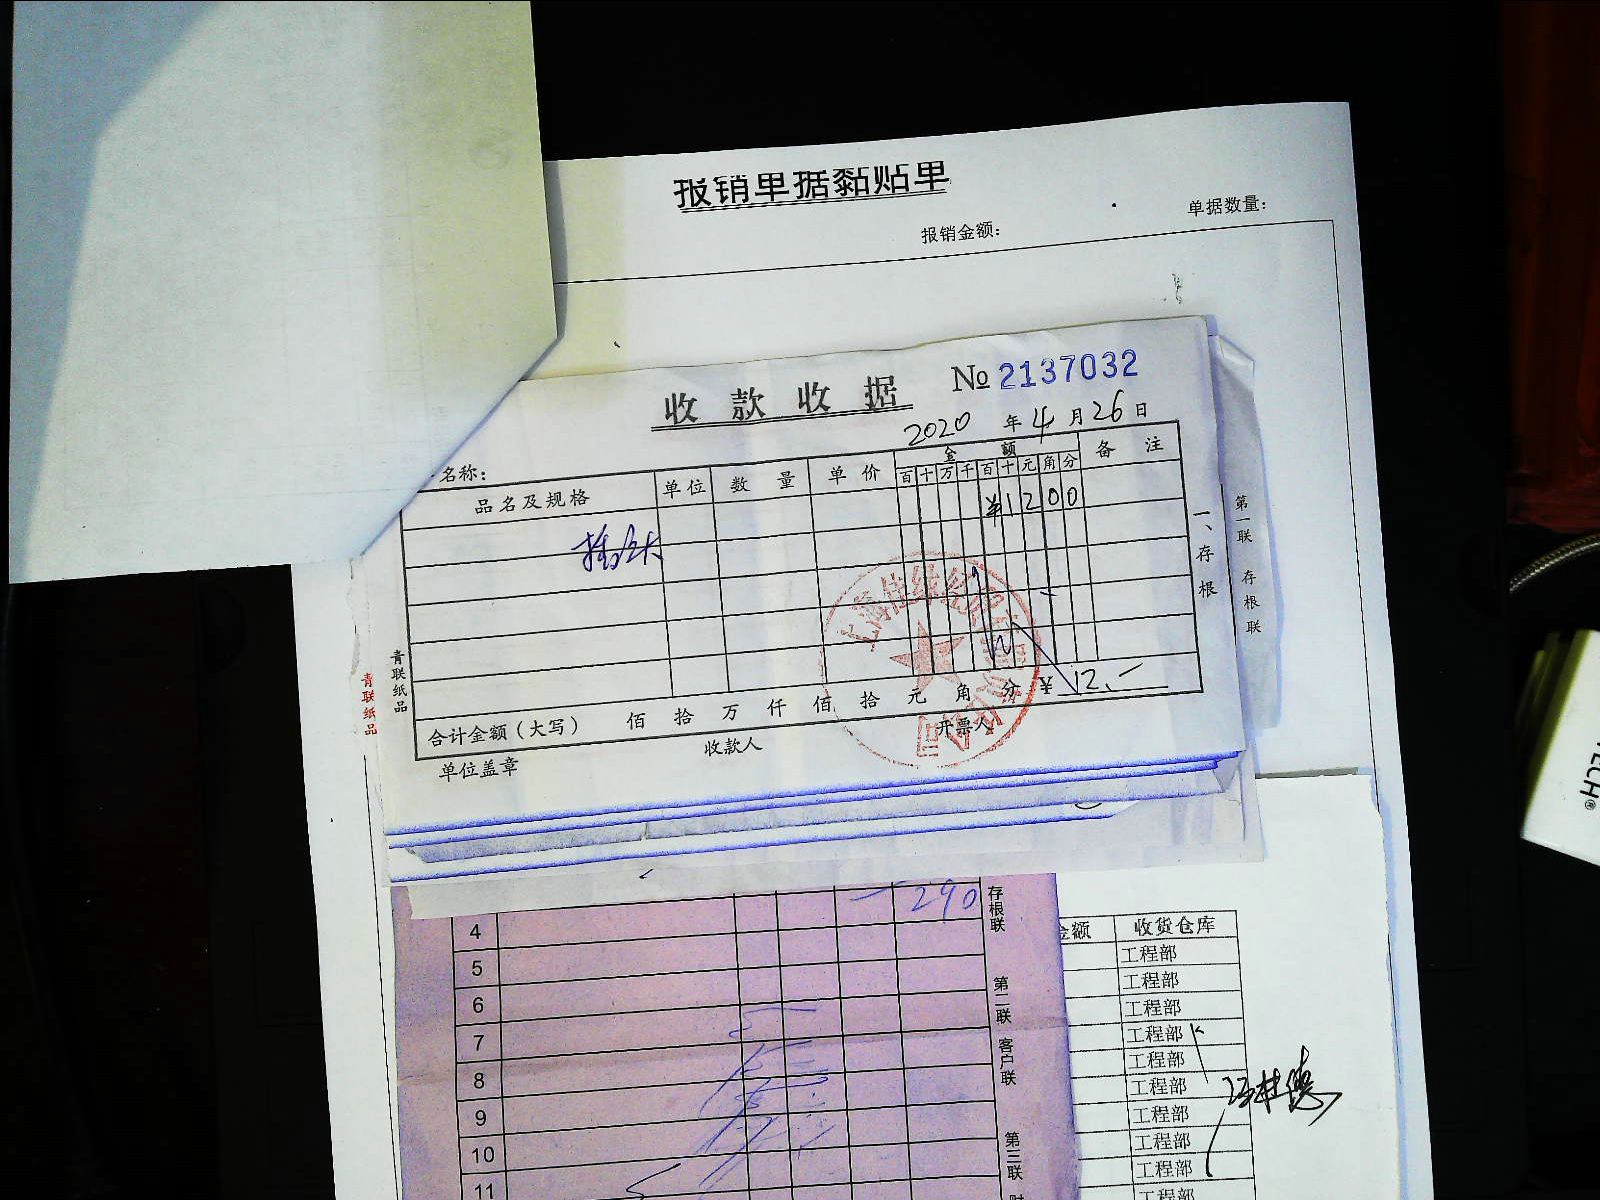 报销单据黏贴单
单据数量：
报销金额：
收款收据 № 2137032
2020 年 4 月 26 日
名称：
品名及规格 单位 数量 单价 金额 备注
百 十 万 千 百 十 元 角 分
¥ 1 2 0 0
一、存根
第一联 存根联
青联纸品
青联纸品
合计金额（大写） 佰 拾 万 仟 佰 拾 元 角 分 ¥ 12.-
单位盖章 收款人 开票人
290
存根联
第二联 客户联
第三联
4
5
6
7
8
9
10
11
金额 收货仓库
工程部
工程部
工程部
工程部
工程部
工程部
工程部
工程部
工程部
工程部
TECH®